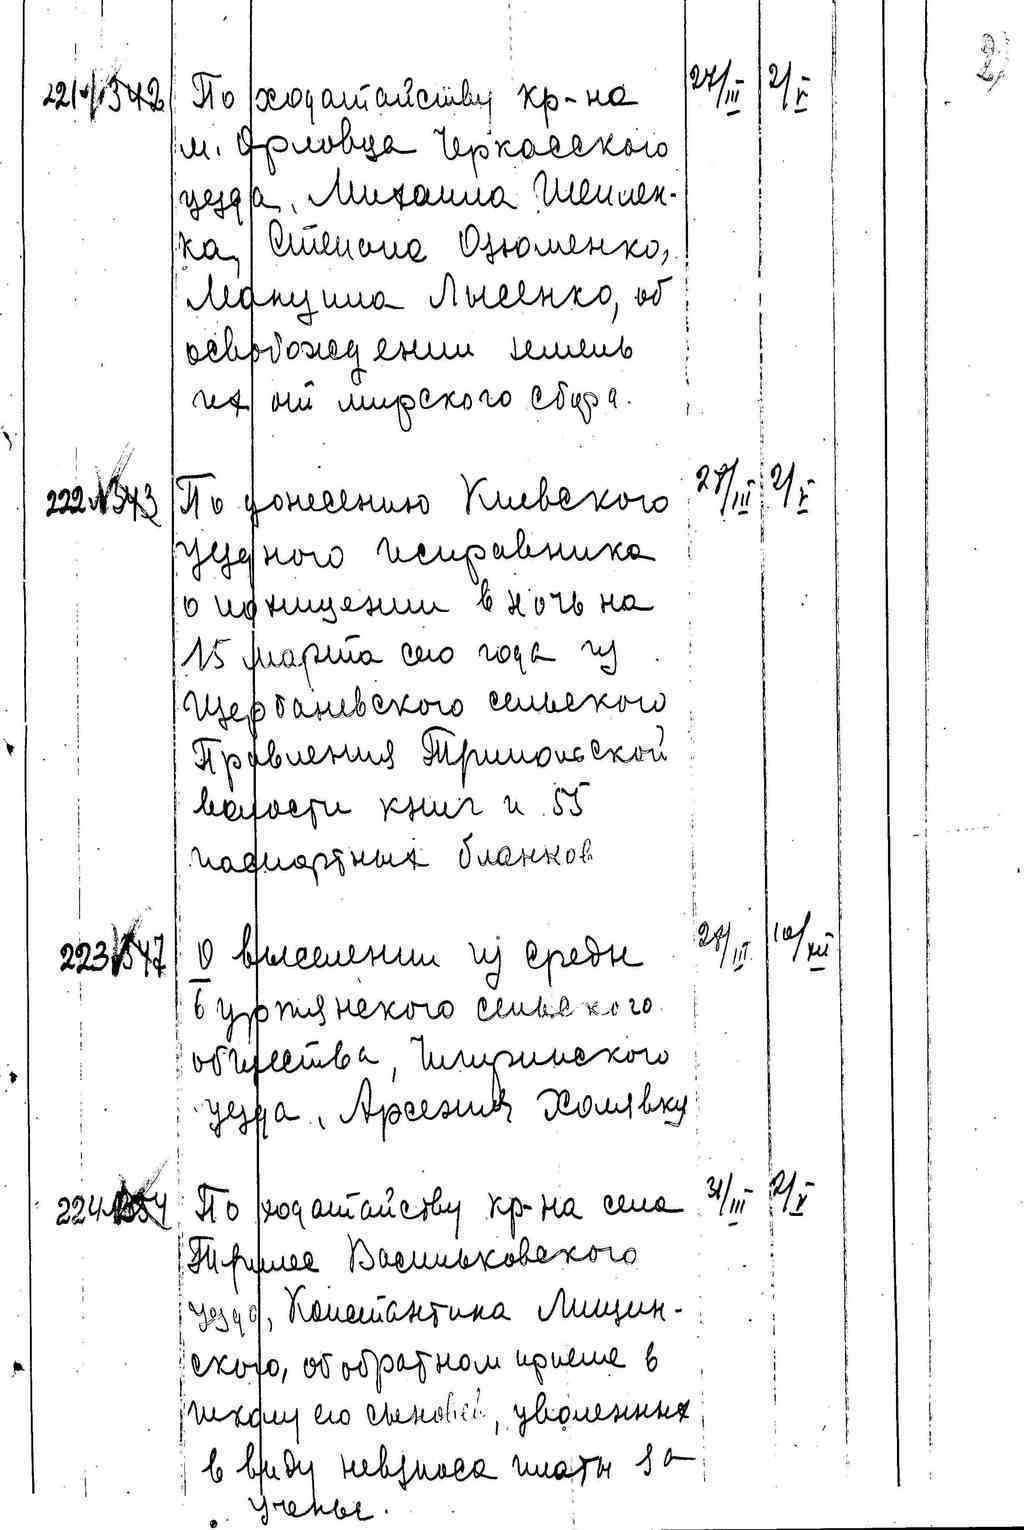 221 №342 По ходатайству кр-на 27/III 2/V
м. Орловца Черкасского
уезда, Михаила
Степана Озюменко,
Лысенко, об
освобождении земель
их от мирского сбора.
222 №343 По донесению Киевского 27/III 2/V
уездного исправника
о похищении в ночь на
15 марта сего года из
Щербаневского сельского
Правления Трипольской
волости книг и 55
паспортных бланков
223 №347 О выселении из среды 27/III 10/XII
сельского
общества, Чигиринского
уезда, Арсения Холявку
224 №354 По ходатайству кр-на села 31/III 2/V
Трилес Васильковского
уезда, Константина Лищин-
ского, об обратном приеме в
школу его сыновей, уволенных
в виду невзноса платы за
ученье.
2